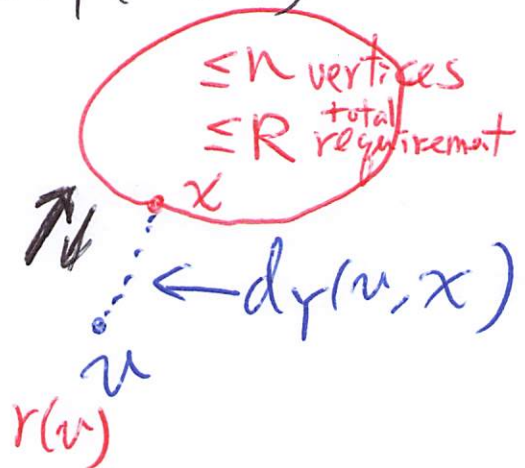 ≤n vertices
≤R total requirement
x
←d_T(v, x)
v
r(v)